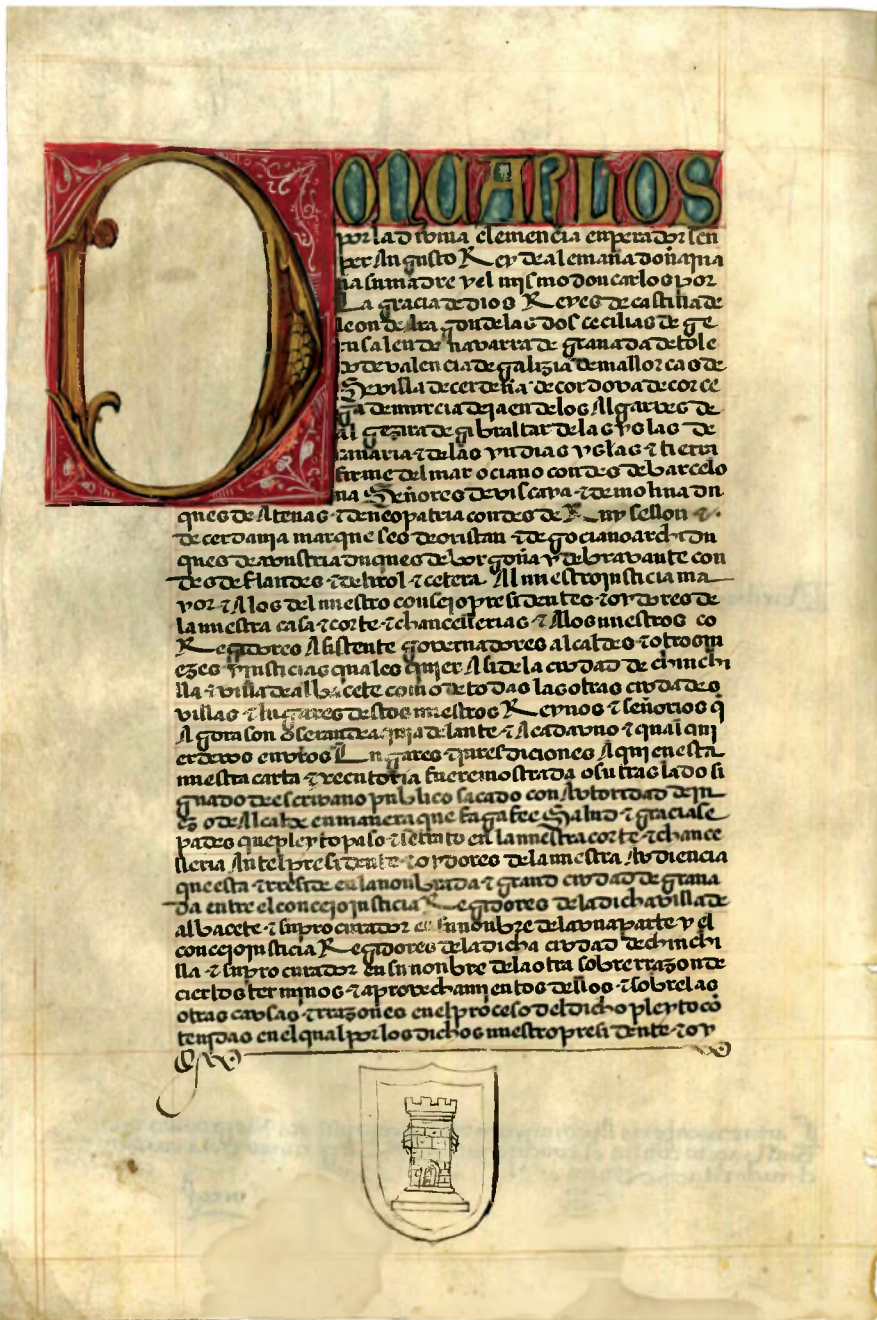 DON CARLOS
por la divina clemencia emperador sen
per Augusto Rey de alemaña doña jua
na su madre y el mismo don carlos por
La gracia de dios Reyes de castilla de
leon de Aragon de las dos cecilias de ge
rusalen de navarra de granada de tole
do de valencia de galizia de mallorcas de
Sevilla de cerdeña de cordova de corce
ga de murcia de jaen de los Algarves de
al gezira de gibraltar de las yslas de
canaria t de las yndias yslas t tierra
firme del mar ociano condes de barcelo
na Señores de viscaya t de molina du
ques de Atenas t de neopatria condes de Ruysellon t
de cerdania marqueses de oristan t de gociano archidu
ques de avustria duques de borgoña y de bravante con
des de flandes t de tirol t cetera Al nuestro justicia ma
yor t A los del nuestro consejo presidentes t oydores de
la nuestra casa t corte t chancellerias t A los nuestros co
Regidores Asistente governadores alcaldes t otros ju
ezes y justicias quales quier Asi de la civdad de chinchi
lla t villa de albacete como de todas las otras civdades
villas t lugares destos nuestros Reynos t señorios q̄
Agora son o seran de aqui adelante t A cada vno t qual qui
er de vos en vros Lugares t juresdiciones A quien esta
nuestra carta executoria fuere mostrada o su traslado si
gnado de escrivano publico sacado con Avtoridad de ju
ez o de Alcalde en manera que faga fee Salud t gracia se
pades que pleyto paso t se trato en la nuestra corte t chance
lleria Ante el presidente t oydores de la nuestra Avdiencia
que esta t rreside en la nonbrada t grand civdad de grana
da entre el concejo justicia Regidores de la dicha villa de
albacete t su procurador en su nonbre de la vna parte y el
concejo justicia Regidores de la dicha civdad de chinchi
lla t su procurador en su nonbre de la otra sobre rrazon de
ciertos terminos t aprovechamientos dellos t sobre las
otras cavsas t rrazones en el proceso del dicho pleyto cō
tenidas en el qual por los dichos nuestro presidente t oy